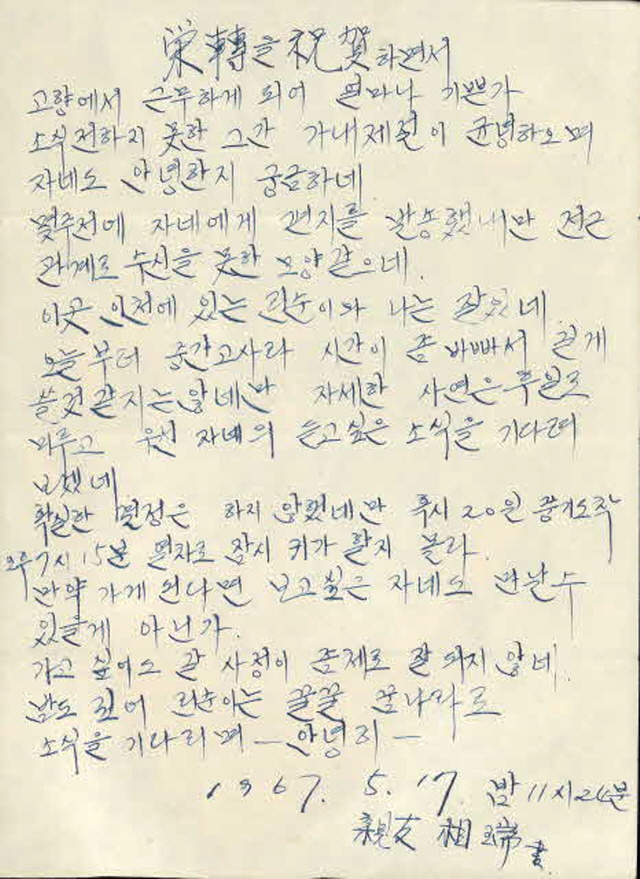 栄轉을 祝賀하면서
고향에서 근무하게 되어 얼마나 기쁜가
소식전하지 못한 그간 가내제절이 균녕하오며
자네도 안녕한지 궁금하네
몇주전에 자네에게 편지를 발송했네만 전근
관계로 수신을 못한 모양같으네.
이곳 인천에 있는 린순이와 나는 잘있네
오늘부터 중간고사라 시간이 좀 바빠서 길게
쓸것같지는않네만 자세한 사연은후일로
미루고 우선 자네의 듣고싶은 소식을 기다려
보겠네
확실한 결정은 하지 않었네만 혹시 20일 풍기도착
오후7시 15분 열차로 잠시 귀가 할지 몰라.
만약 가게 된다면 보고싶은 자네도 만날수
있을게 아닌가.
가고 싶어도 갈 사정이 문제로 잘 되지 않네.
밤도 깊어 린순이는 꿀꿀 꿈나라로
소식을 기다리며 — 안녕히 —
1967. 5. 17. 밤 11시24분
親友 相瑞 書